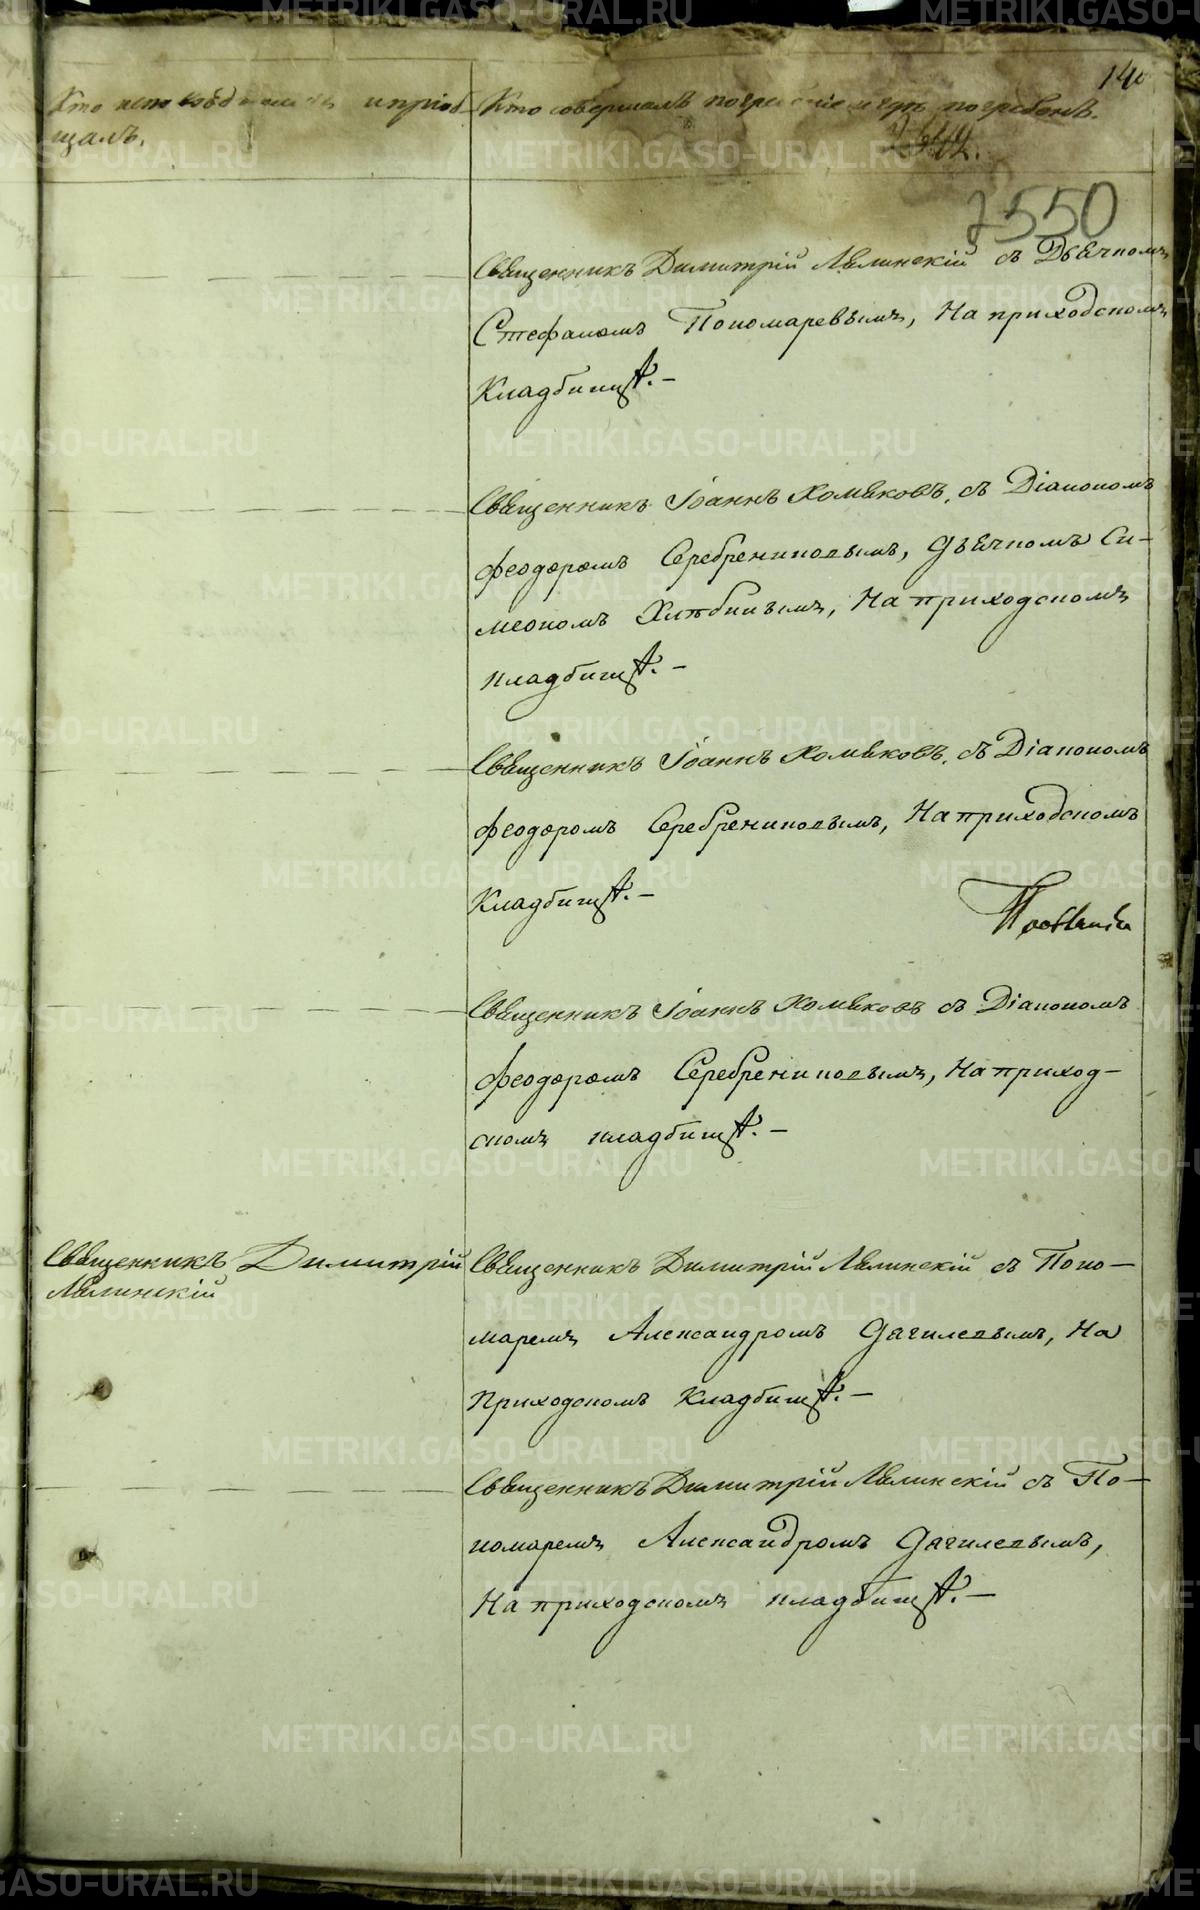 140
Кто исповѣдывалъ и пріоб
щалъ.
Кто совершалъ погребеніе и гдѣ погребенъ.
7550
Священникъ Димитрій Лялинскій съ Дьячкомъ
Стефаномъ Пономаревымъ, На приходскомъ
Кладбищѣ.–
Священникъ Іоаннъ Хомяковъ, съ Діакономъ
Феодоромъ Серебрениковымъ, Дьячкомъ Си-
меономъ Хлѣбинымъ, На приходскомъ
кладбищѣ.–
Священникъ Іоаннъ Хомяковъ, съ Діакономъ
Феодоромъ Серебрениковымъ, На приходскомъ
Кладбищѣ.–
Священникъ Іоаннъ Хомяковъ съ Діакономъ
Феодоромъ Серебрениковымъ, На приход-
скомъ кладбищѣ.–
Священникъ Димитрій
Лялинскій
Священникъ Димитрій Лялинскій съ Поно-
маремъ Александромъ Дягилевымъ, На
Приходскомъ Кладбищѣ.–
Священникъ Димитрій Лялинскій съ По-
номаремъ Александромъ Дягилевымъ,
На приходскомъ кладбищѣ.–
METRIKI.GASO-URAL.RU